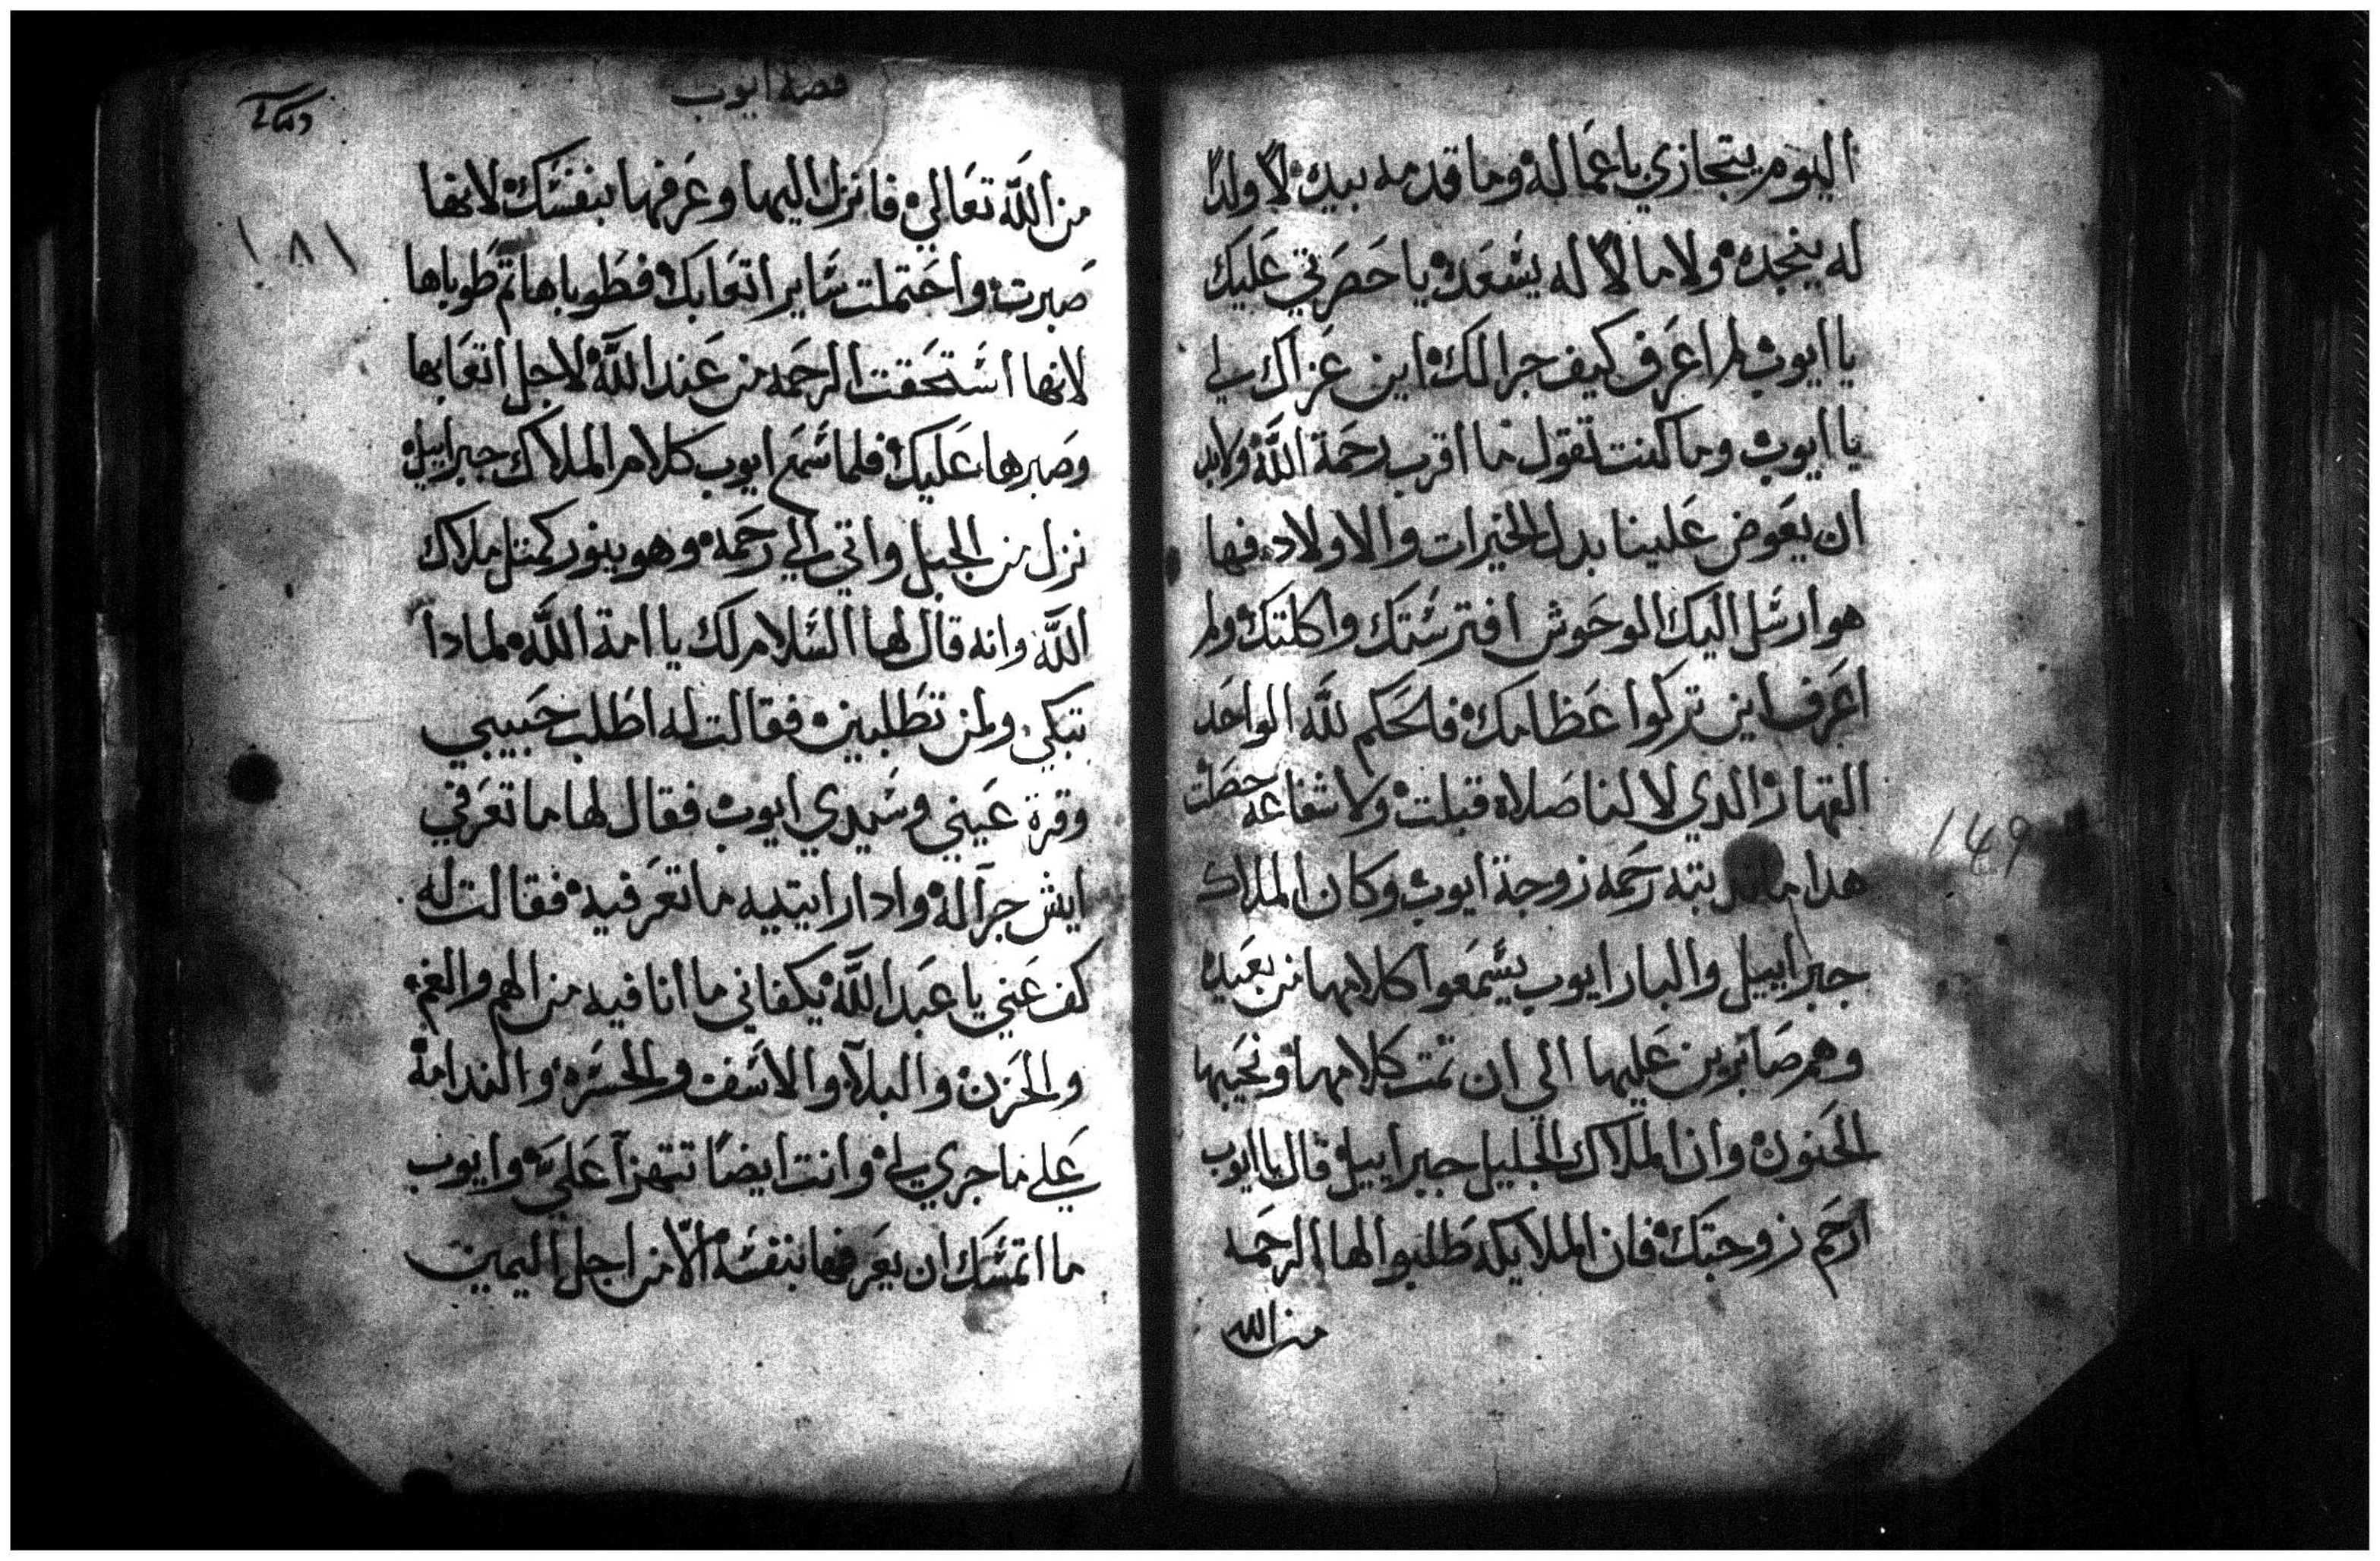 اليوم يتجازي باعماله وما قدمه بيديه لا ولدا
له ينجده ولا مالا له يسعده يا حصرتي عليك
يا ايوب لم اعرف كيف جرالك اين عزاك لي
يا ايوب وما كنت تقول ما اقرب رحمة الله ولابد
ان يعوض علينا بدل الخيرات والاولاد فها
هو ارسل اليك الوحوش افترستك واكلتك ولم
اعرف اين تركوا عظامك فالحكم لله الواحد
القهار الدي لا لنا صلاه قبلت ولا شفاعه حصلت
هدا ما بته رحمه زوجة ايوب وكان الملاك
جبراييل والبار ايوب يسمعوا كلامها من بعيد
وهم صابرين عليها الى ان تمت كلامها ونحيبها
الحنون وان الملاك الجليل جبراييل قال يا ايوب
ارحم زوجتك فان الملايكه طلبوا لها الرحمه
من الله
149
قصة ايوب
١٨١
من الله تعالي فانزل اليها وعرفها بنفسك لانها
صبرت واحتملت ساير اتعابك فطوباها تم طوباها
لانها استحقت الرحمه من عند الله لاجل اتعابها
وصبرها عليك فلما سمع ايوب كلام الملاك جبراييل
نزل من الجبل واتي الي رحمه وهو بنور كمتل ملاك
الله وانه قال لها السلام لك يا امة الله لمادا
تبكي ولمن تطلبين فقالت له اطلب حبيبي
وقرة عيني وسيدي ايوب فقال لها ما تعرفي
ايش جراله وادا رايتيه ما تعرفيه فقالت له
كف عني يا عبد الله يكفاني ما انا فيه من الهم والغم
والحزن والبلا والاسف والحسره والندامة
علي ما جري لي وانت ايضا تتهزا علي وايوب
ما اتمسك ان يعرفها بنفسه الا من اجل اليمين